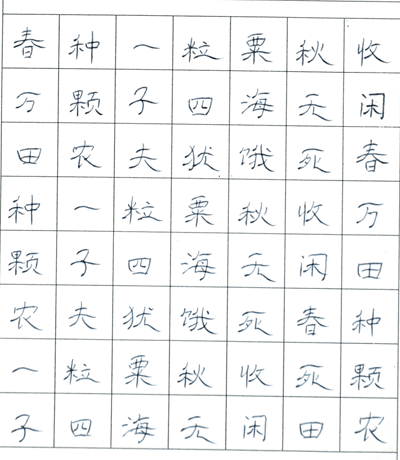 春种一粒粟秋收
万颗子四海无闲
田农夫犹饿死春
种一粒粟秋收万
颗子四海无闲田
农夫犹饿死春种
一粒粟秋收死颗
子四海无闲田农